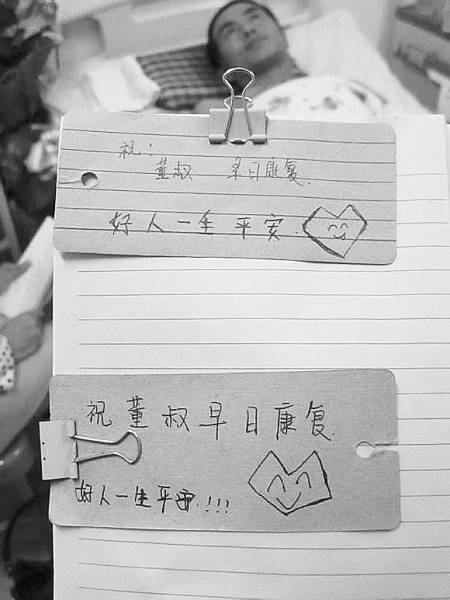 祝：
董叔 早日康复.
好人一生平安.
祝董叔早日康复
好人一生平安.!!!